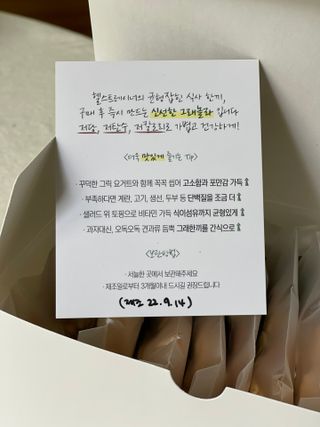 헬스트레이너의 균형잡힌 식사 한끼,
구매 후 즉시 만드는 신선한 그래놀라 입니다
저당, 저탄수, 저칼로리로 가볍고 건강하게!
<더욱 맛있게 즐기는 Tip>
· 꾸덕한 그릭 요거트와 함께 꼭꼭 씹어 고소함과 포만감 가득
· 부족하다면 계란, 고기, 생선, 두부 등 단백질을 조금 더
· 샐러드 위 토핑으로 비타민 가득 식이섬유까지 균형있게
· 과자대신, 오독오독 견과류 듬뿍 그래한끼를 간식으로
<보관방법>
· 서늘한 곳에서 보관해주세요
· 제조일로부터 3개월이내 드시길 권장드립니다
(제조 22. 9. 14)